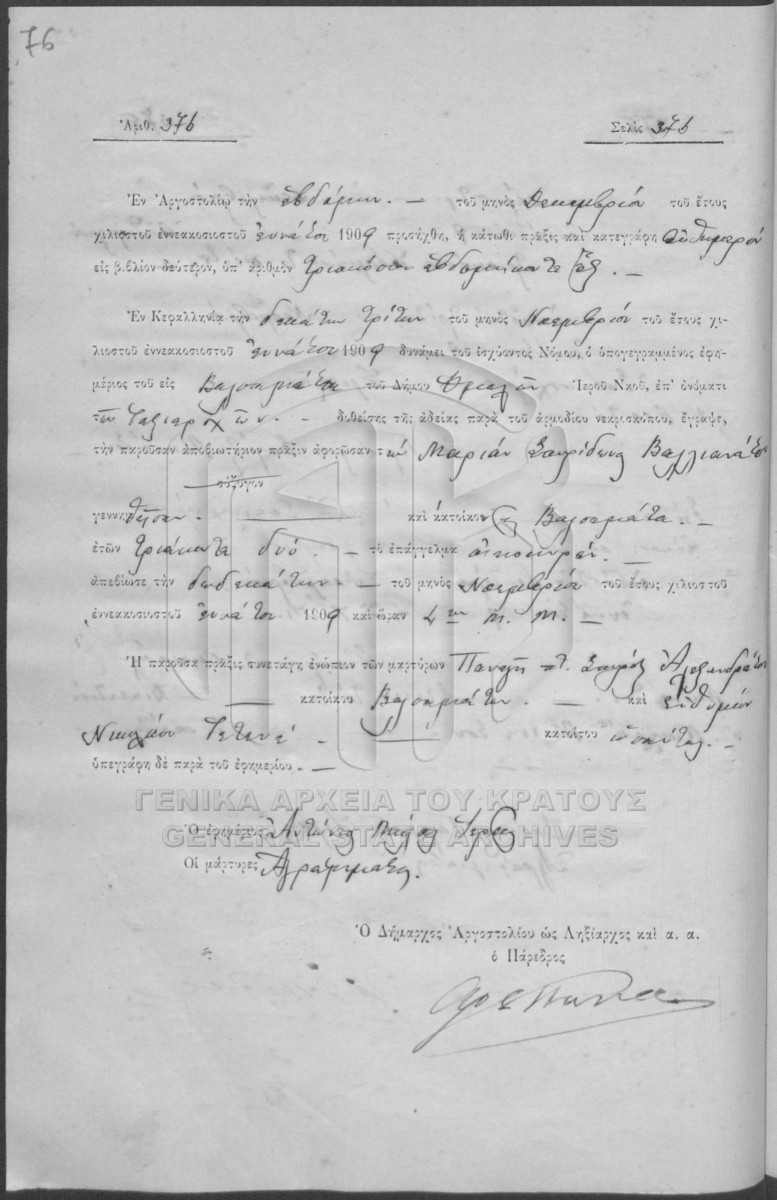 76
Ἀριθ. 376 Σελὶς 376
Ἐν Ἀργοστολίῳ τὴν ἑβδόμην. — τοῦ μηνὸς Δεκεμβρίου τοῦ ἔτους
χιλιοστοῦ ἐννεακοσιοστοῦ ἐννάτου 1909 προσήχθη, ἡ κάτωθι πρᾶξις καὶ κατεγράφη αὐθημερόν
εἰς βιβλίον δεύτερον, ὑπ' ἀριθμὸν τριακόσια ἑβδομήκοντα ἕξ. —
Ἐν Κεφαλληνίᾳ τὴν δεκάτην τρίτην τοῦ μηνὸς Νοεμβρίου τοῦ ἔτους χι-
λιοστοῦ ἐννεακοσιοστοῦ ἐννάτου 1909 δυνάμει τοῦ ἰσχύοντος Νόμου, ὁ ὑπογεγραμμένος ἐφη-
μέριος τοῦ εἰς Βαλσαμάτα τοῦ Δήμου Ὁμαλῶν Ἱεροῦ Ναοῦ, ἐπ' ὀνόματι
τῶν Ταξιαρχῶν. — δοθείσης τῆς ἀδείας παρὰ τοῦ ἁρμοδίου νεκρισκόπου, ἔγραψε,
τὴν παροῦσαν ἀποβιωτήριον πρᾶξιν ἀφορῶσαν τὴν Μαρίαν Σπυρίδωνος Βαλλιανάτου
σύζυγον
γεννηθεῖσαν. — καὶ κάτοικον Βαλσαμάτα. —
ἐτῶν τριάκοντα δύο. — τὸ ἐπάγγελμα οἰκοκυράν. —
ἀπεβίωσε τὴν δωδεκάτην — τοῦ μηνὸς Νοεμβρίου τοῦ ἔτους χιλιοστοῦ
ἐννεακοσιοστοῦ ἐννάτου 1909 καὶ ὥραν 4ην π. μ. —
Ἡ παροῦσα πρᾶξις συνετάγη ἐνώπιον τῶν μαρτύρων Παναγῆ Σπυρ. Ἀλεξανδράτου
— κατοίκου Βαλσαμάτων. — καὶ Εὐθυμίου
Νικολάου — κατοίκου
ὑπεγράφη δὲ παρὰ τοῦ ἐφημερίου. —
ΓΕΝΙΚΑ ΑΡΧΕΙΑ ΤΟΥ ΚΡΑΤΟΥΣ
Ὁ ἐφημέριος Ἀντώνιος
GENERAL STATE ARCHIVES
Οἱ μάρτυρες Ἀγράμματοι.
Ὁ Δήμαρχος Ἀργοστολίου ὡς Ληξίαρχος καὶ α. α.
ὁ Πάρεδρος